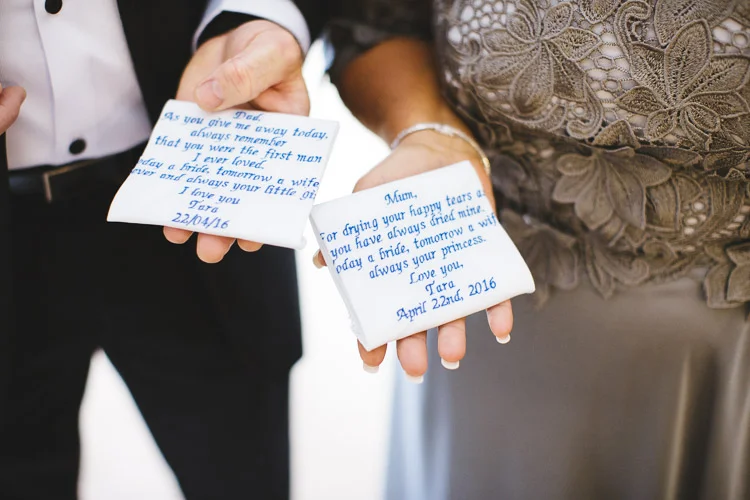 Dad,
As you give me away today,
always remember
that you were the first man
I ever loved.
oday a bride, tomorrow a wife
ever and always your little gi
I love you
Tara
22/04/16
Mum,
For drying your happy tears a
you have always dried mine.
oday a bride, tomorrow a wif
always your princess.
Love you,
Tara
April 22nd, 2016